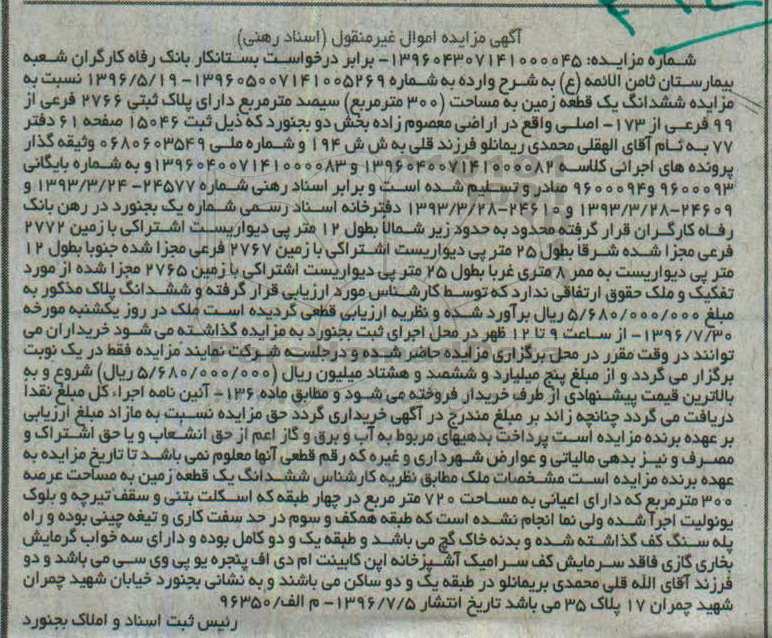 آگهی مزایده اموال غیرمنقول (اسناد رهنی)
شماره مزایده: ۱۳۹۶۰۴۳۰۷۱۴۱۰۰۰۰۴۵- برابر درخواست بستانکار بانک رفاه کارگران شعبه
بیمارستان ثامن الائمه (ع) به شرح وارده به شماره ۱۳۹۶۰۵۰۰۷۱۴۱۰۰۵۲۶۹-۱۳۹۶/۵/۱۹ نسبت به
مزایده ششدانگ یک قطعه زمین به مساحت (۳۰۰ مترمربع) سیصد مترمربع دارای پلاک ثبتی ۲۷۶۶ فرعی از
۹۹ فرعی از ۱۷۳- اصلی واقع در اراضی معصوم زاده بخش دو بجنورد که ذیل ثبت ۱۵۰۴۶ صفحه ۶۱ دفتر
۷۷ به نام آقای الهقلی محمدی ریمانلو فرزند قلی به ش ش ۱۹۴ و شماره ملی ۰۶۸۰۶۰۳۵۴۹ وثیقه گذار
پرونده های اجرائی کلاسه ۱۳۹۶۰۴۰۰۷۱۴۱۰۰۰۰۸۲ و ۱۳۹۶۰۴۰۰۷۱۴۱۰۰۰۰۸۳ و به شماره بایگانی
۹۶۰۰۰۹۳ و ۹۶۰۰۰۹۴ صادر و تسلیم شده است و برابر اسناد رهنی شماره ۲۴۵۷۷-۱۳۹۳/۳/۲۴ و
۲۴۶۰۹-۱۳۹۳/۳/۲۸ و ۲۴۶۱۰-۱۳۹۳/۳/۲۸ دفترخانه اسناد رسمی شماره یک بجنورد در رهن بانک
رفاه کارگران قرار گرفته محدود به حدود زیر شمالاً بطول ۱۲ متر پی دیواریست اشتراکی با زمین ۲۷۷۲
فرعی مجزا شده شرقا بطول ۲۵ متر پی دیواریست اشتراکی با زمین ۲۷۶۷ فرعی مجزا شده جنوبا بطول ۱۲
متر پی دیواریست به ممر ۸ متری غربا بطول ۲۵ متر پی دیواریست اشتراکی با زمین ۲۷۶۵ مجزا شده از مورد
تفکیک و ملک حقوق ارتفاقی ندارد که توسط کارشناس مورد ارزیابی قرار گرفته و ششدانگ پلاک مذکور به
مبلغ ۵/۶۸۰/۰۰۰/۰۰۰ ریال برآورد شده و نظریه ارزیابی قطعی گردیده است ملک در روز یکشنبه مورخه
۱۳۹۶/۷/۳۰- از ساعت ۹ تا ۱۲ ظهر در محل اجرای ثبت بجنورد به مزایده گذاشته می شود خریداران می
توانند در وقت مقرر در محل برگزاری مزایده حاضر شده و درجلسه شرکت نمایند مزایده فقط در یک نوبت
برگزار می گردد و از مبلغ پنج میلیارد و ششصد و هشتاد میلیون ریال (۵/۶۸۰/۰۰۰/۰۰۰ ریال) شروع و به
بالاترین قیمت پیشنهادی از طرف خریدار فروخته می شود و مطابق ماده ۱۳۶- آئین نامه اجراء کل مبلغ نقدا
دریافت می گردد چنانچه زائد بر مبلغ مندرج در آگهی خریداری گردد حق مزایده نسبت به مازاد مبلغ ارزیابی
بر عهده برنده مزایده است پرداخت بدهیهای مربوط به آب و برق و گاز اعم از حق انشعاب و یا حق اشتراک و
مصرف و نیز بدهی مالیاتی و عوارض شهرداری و غیره که رقم قطعی آنها معلوم نمی باشد تا تاریخ مزایده به
عهده برنده مزایده است مشخصات ملک مطابق نظریه کارشناس ششدانگ یک قطعه زمین به مساحت عرصه
۳۰۰ مترمربع که دارای اعیانی به مساحت ۷۲۰ متر مربع در چهار طبقه که اسکلت بتنی و سقف تیرچه و بلوک
یونولیت اجرا شده ولی نما انجام نشده است که طبقه همکف و سوم در حد سفت کاری و تیغه چینی بوده و راه
پله سنگ کف گذاشته شده و بدنه خاک گچ می باشد و طبقه یک و دو کامل بوده و دارای سه خواب گرمایش
بخاری گازی فاقد سرمایش کف سرامیک آشپزخانه اپن کابینت ام دی اف پنجره یو پی وی سی می باشد و دو
فرزند آقای الله قلی محمدی بریمانلو در طبقه یک و دو ساکن می باشند و به نشانی بجنورد خیابان شهید چمران
شهید چمران ۱۷ پلاک ۳۵ می باشد تاریخ انتشار ۱۳۹۶/۷/۵- م الف/۹۶۳۵۰
رئیس ثبت اسناد و املاک بجنورد